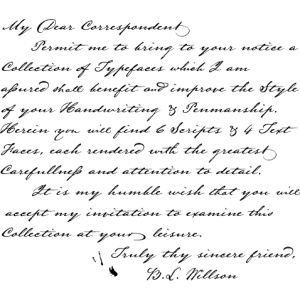 My Dear Correspondent
Permit me to bring to your notice a
Collection of Typefaces which I am
aſsured shall benefit and improve the Style
of your Handwriting & Penmanship.
Herein you will find 6 Scripts & 4 Text
Faces, each rendered with the greatest
Carefullneſs and attention to detail.
It is my humble wish that you will
accept my invitation to examine this
Collection at your leisure.
Truly thy sincere friend,
B.L. Willson